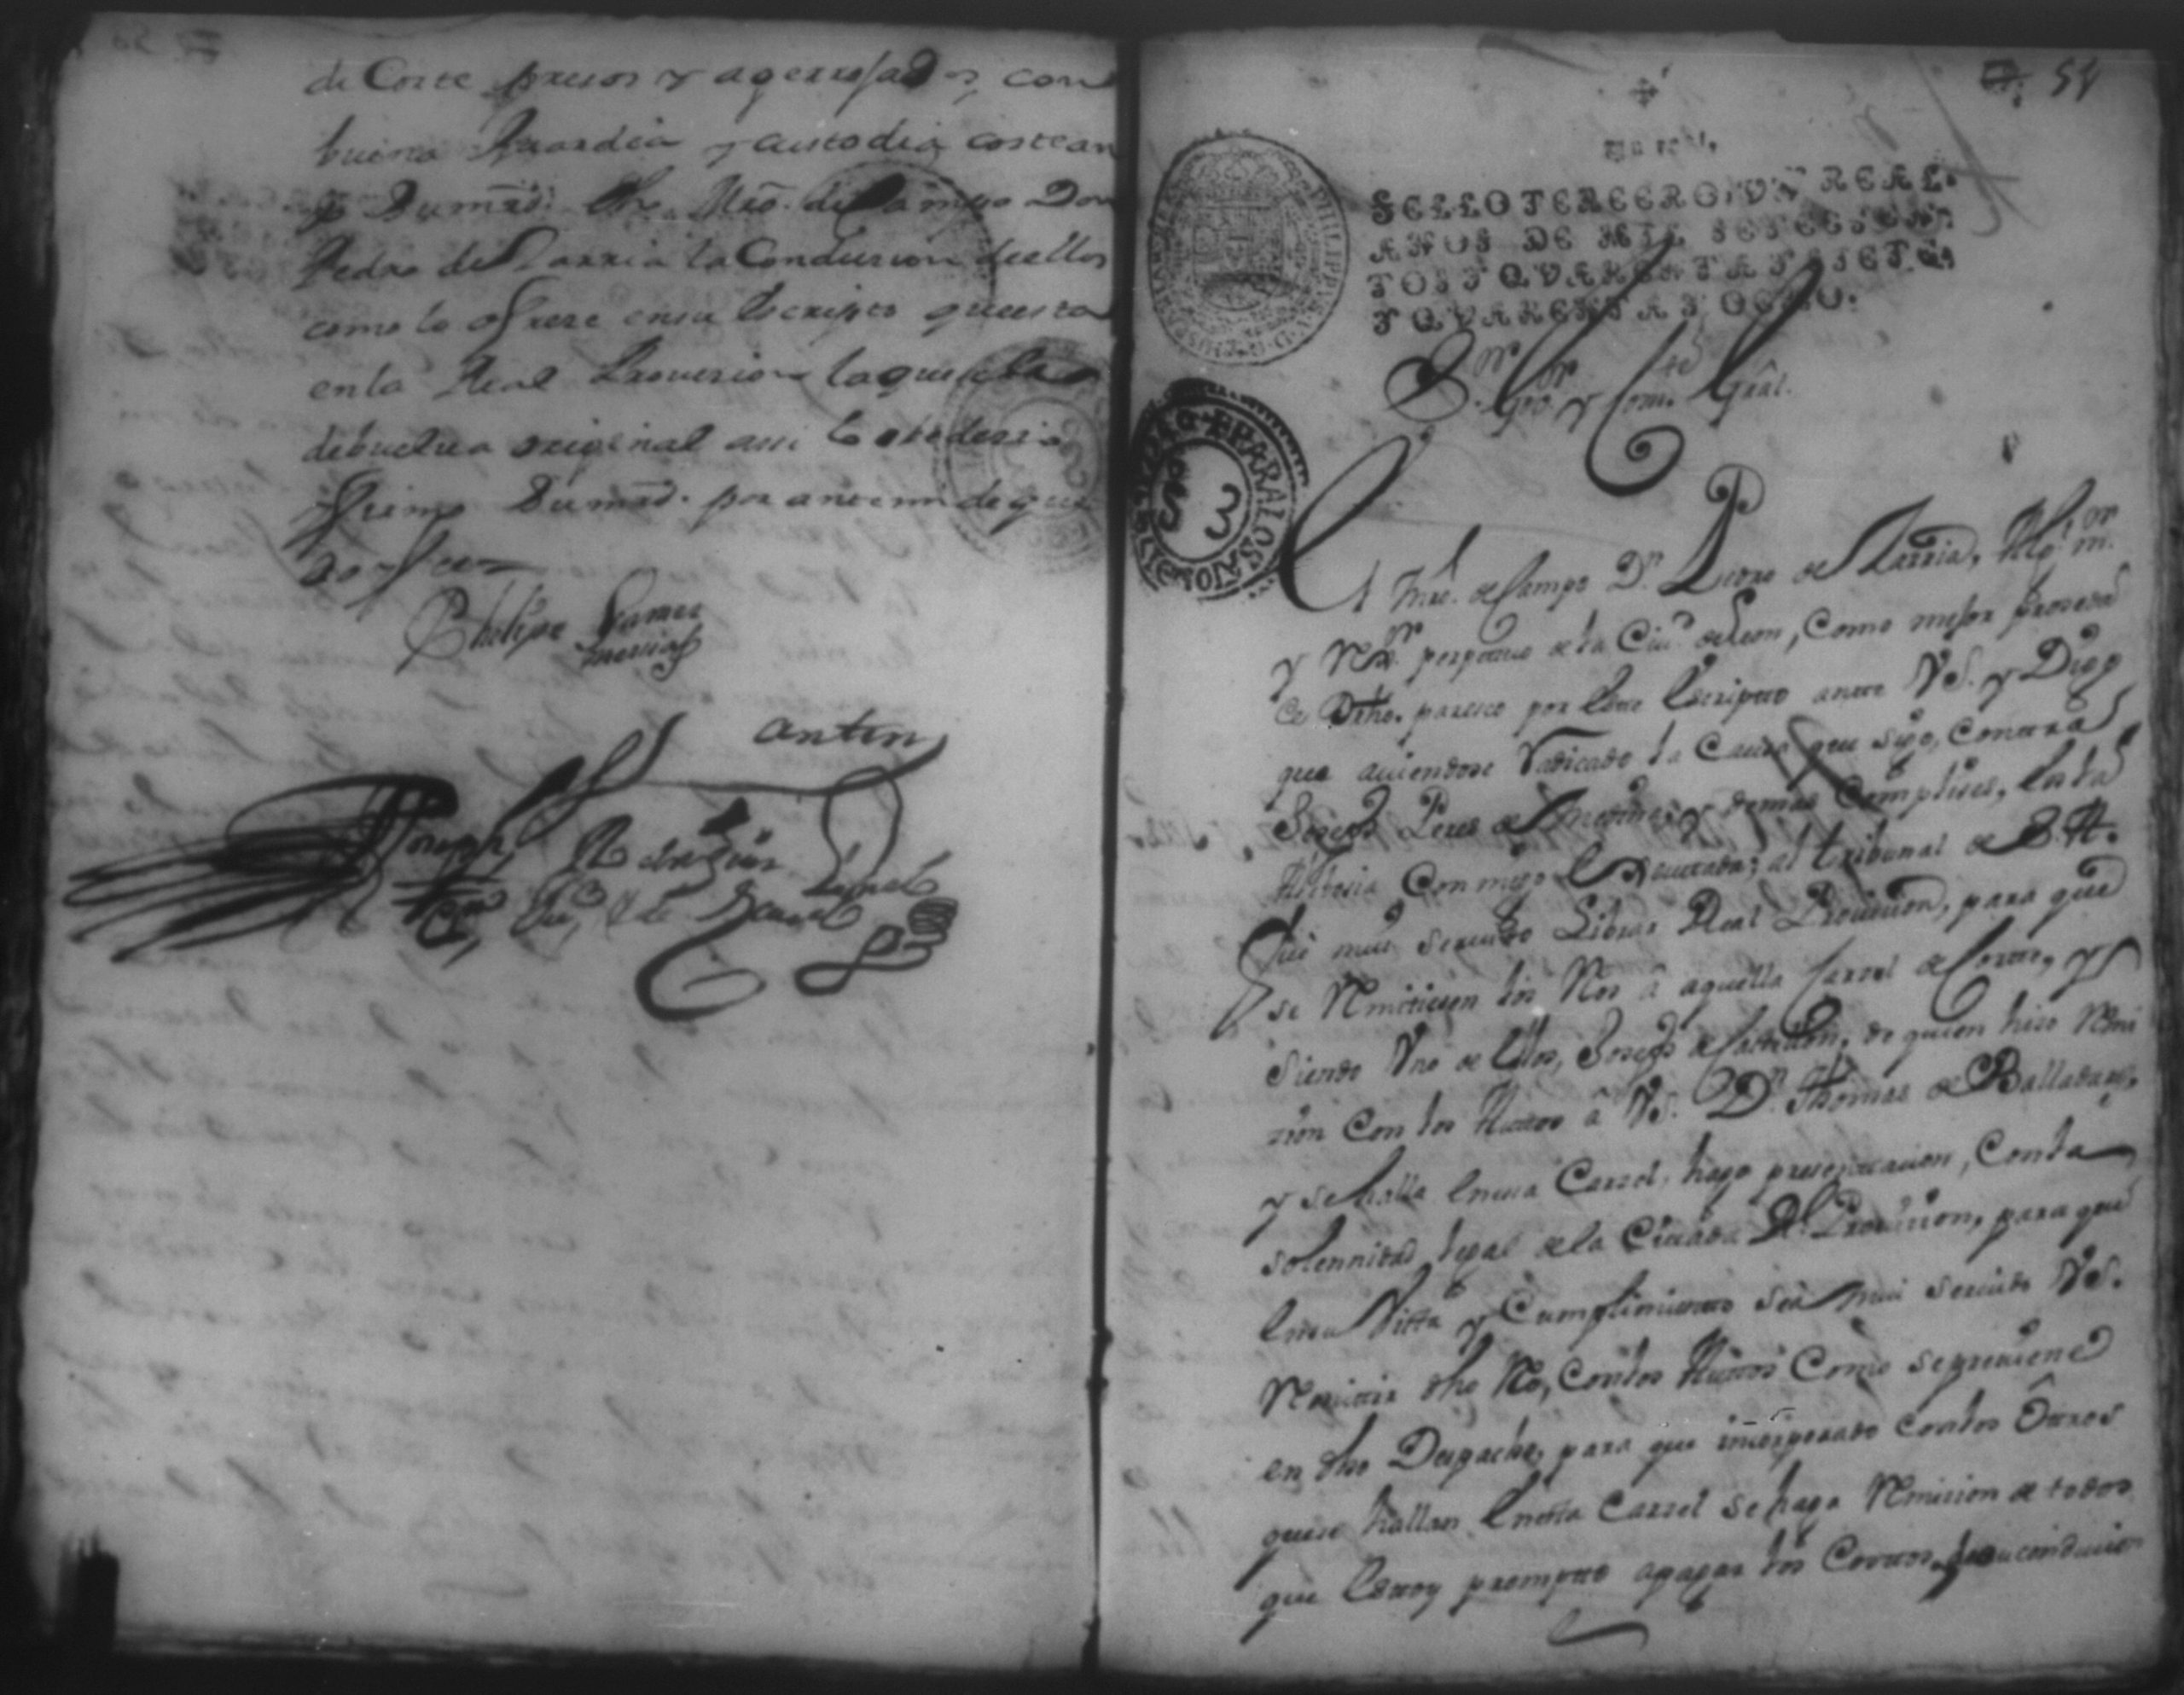 de Corte presos y agerrojados, con
buena Guardia y custodia costean
do Su mrd. dho Mro. de Campo Don
Pedro de Sarria la Condusion de ellos
como lo ofrese en su Escripto que esta
en la Real Provision la que se le
debuelva original asi lo
firmo Su mrd. por ante mi de que
doy fee
Phelipe Gamez
Mexia
ante my
Joseph
54
Un real.
SELLO TERCERO, VN REAL,
AÑOS DE MIL SETECIEN
TOS Y QVARENTA Y SIETE,
Y QVARENTA Y OCHO.
PHILIPPVS
PARA LOS AÑOS
S.or Gov.or y Com.te Gràl.
El Mre. de Campo D.n Pedro de Sarria, Alg.l m.or
y Rx.or perpetuo de la Ciu.d de Leon, Como mejor proseda
de Drho. paresco por este Escripto ante VS. y Digo
que aviendose Radicado la Causa que sigo, Contra
Joseph Peres de y demas Complises, en la
Conmigo al tribunal de S. A.
fué mui servido Librar Real Provision, para que
se Remitiesen los Reos â aquella Carzel de Corte, y
Siendo Vno de ellos, Joseph de Castellon, de quien hiso Remi
sion Con los Autos â VS. D.n Thomas de Balladares,
y se halla en esa Carzel, hago presentacion, Con la
solennidad legal de la Citada R.l Provision, para que
en su Vista y Cumplimiento sea mui servido VS.
Remitir dho Reo, Con los Autos Como se previene
en dho Despacho, para que incorporado Con los Ôtros
que se hallan en esta Carzel se haga Remision de todos
que estoy prompto a pagar los Costos de su conducion